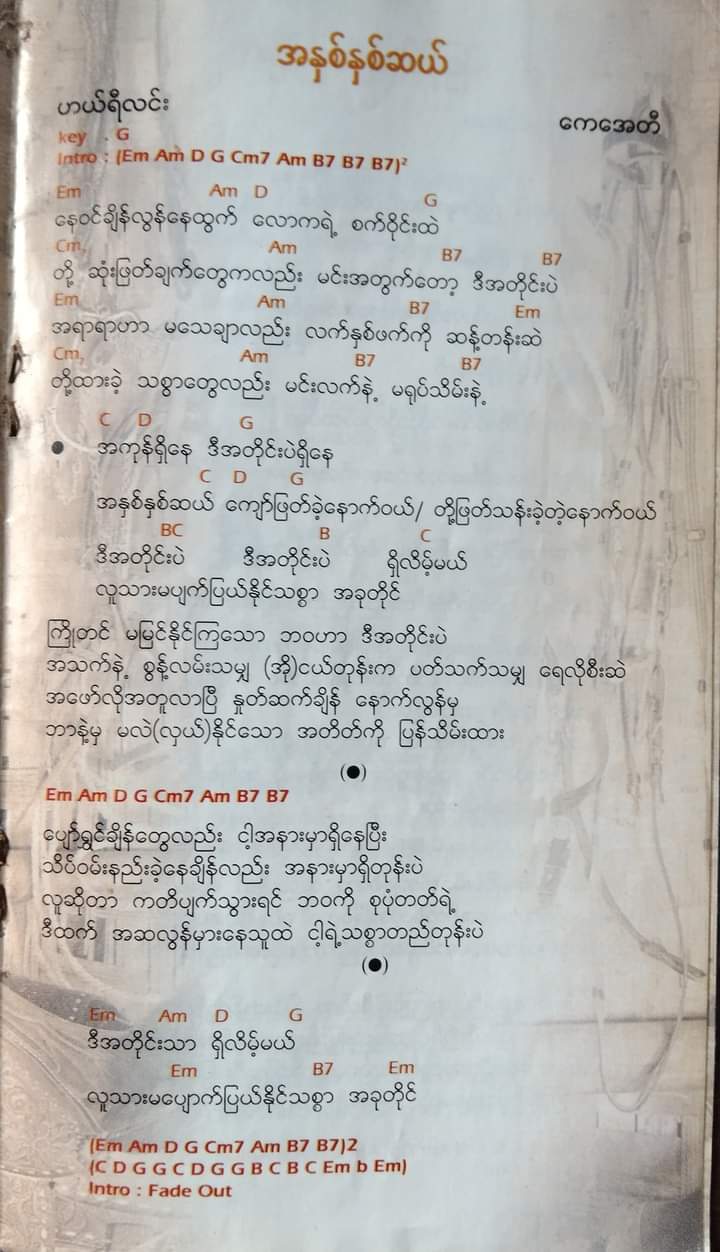 အနှစ်နှစ်ဆယ်
ဟယ်ရီလင်း
ကေအေတီ
key : G
Intro : (Em Am D G Cm7 Am B7 B7 B7)²
Em Am D G
နေဝင်ချိန်လွန်နေထွက် လောကရဲ့ စက်ဝိုင်းထဲ
Cm, Am B7 B7
တို့ ဆုံးဖြတ်ချက်တွေကလည်း မင်းအတွက်တော့ ဒီအတိုင်းပဲ
Em Am B7 Em
အရာရာဟာ မသေချာလည်း လက်နှစ်ဖက်ကို ဆန့်တန်းဆဲ
Cm, Am B7 B7
တို့ထားခဲ့ သစ္စာတွေလည်း မင်းလက်နဲ့ မရုပ်သိမ်းနဲ့
C D G
● အကုန်ရှိနေ ဒီအတိုင်းပဲရှိနေ
C D G
အနှစ်နှစ်ဆယ် ကျော်ဖြတ်ခဲ့နောက်ဝယ်/ တို့ဖြတ်သန်းခဲ့တဲ့နောက်ဝယ်
BC B C
ဒီအတိုင်းပဲ ဒီအတိုင်းပဲ ရှိလိမ့်မယ်
လူသားမပျက်ပြယ်နိုင်သစ္စာ အခုတိုင်
ကြိုတင် မမြင်နိုင်ကြသော ဘဝဟာ ဒီအတိုင်းပဲ
အသက်နဲ့ စွန့်လမ်းသမျှ (အို)ငယ်တုန်းက ပတ်သက်သမျှ ရေလိုစီးဆဲ
အဖော်လိုအတူလာပြီ နှုတ်ဆက်ချိန် နောက်လွန်မှ
ဘာနဲ့မှ မလဲ(လှယ်)နိုင်သော အတိတ်ကို ပြန်သိမ်းထား
(●)
Em Am D G Cm7 Am B7 B7
ပျော်ရွှင်ချိန်တွေလည်း ငါ့အနားမှာရှိနေပြီး
သိပ်ဝမ်းနည်းခဲ့နေချိန်လည်း အနားမှာရှိတုန်းပဲ
လူဆိုတာ ကတိပျက်သွားရင် ဘဝကို စုပုံတတ်ရဲ့
ဒီထက် အဆလွန်မှားနေသူထဲ ငါ့ရဲ့သစ္စာတည်တုန်းပဲ
(●)
Em Am D G
ဒီအတိုင်းသာ ရှိလိမ့်မယ်
Em B7 Em
လူသားမပျောက်ပြယ်နိုင်သစ္စာ အခုတိုင်
(Em Am D G Cm7 Am B7 B7)2
(C D G G C D G G B C B C Em b Em)
Intro : Fade Out